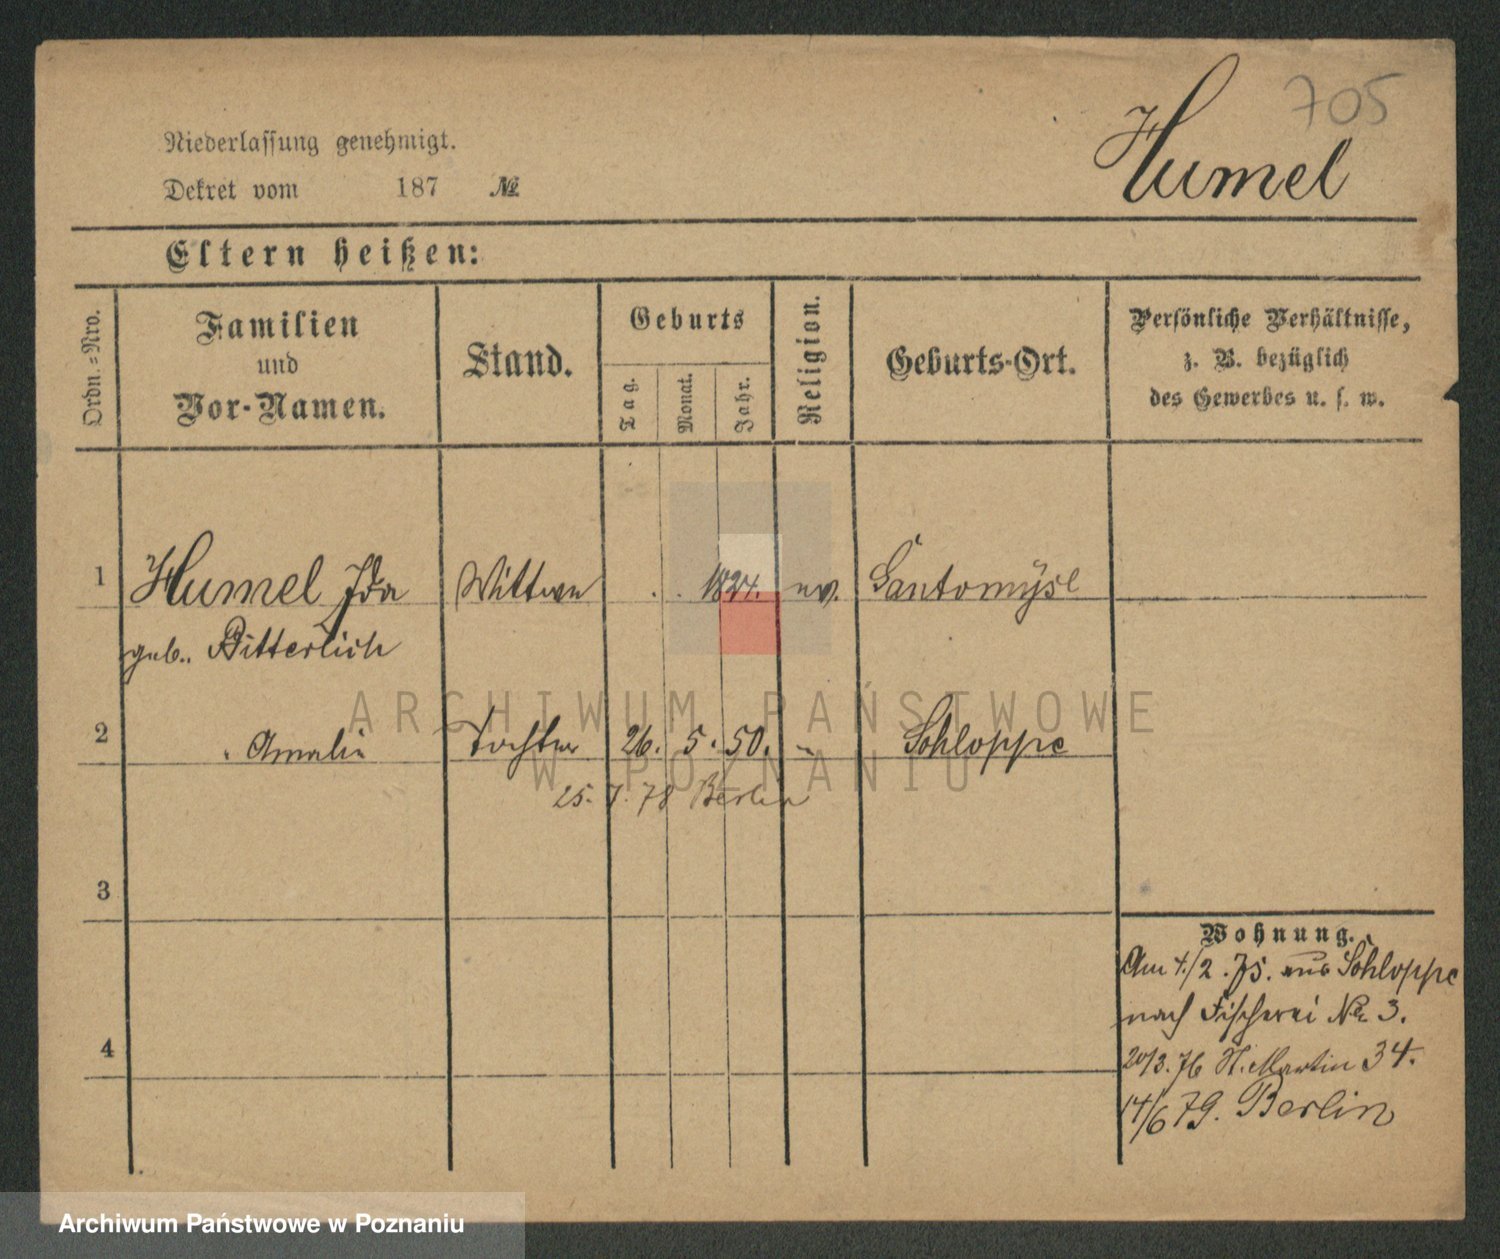 705
Humel
Niederlassung genehmigt.
Dekret vom 187 №
Eltern heißen:
Ordn.=Nro.
Familien
und
Vor-Namen.
Stand.
Geburts
Tag.
Monat.
Jahr.
Religion.
Geburts-Ort.
Persönliche Verhältnisse,
z. B. bezüglich
des Gewerbes u. s. w.
1 Humel Ida Wittwe . . 1824. ev. Santomysl
geb. Bitterlich
2 " Amalie Tochter 26. 5. 50. " Schloppe
25. 7. 78 Berlin
3
4
Wohnung.
Am 4./2. 75. aus Schloppe
nach Fischerei No 3.
20/3. 76 St. Martin 34.
14/6 79. Berlin
ARCHIWUM PAŃSTWOWE
W POZNANIU
Archiwum Państwowe w Poznaniu